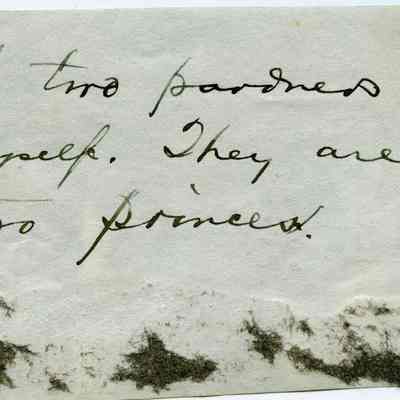 two pardners
yself. They are
o princes.